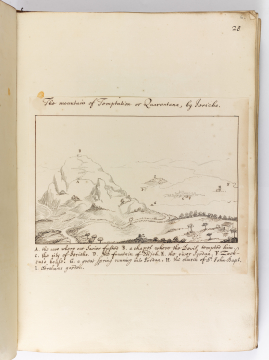 28
The mountain of Temptation or Quarantana, by Jericho.
A. the cave where our Saviour fasted B. a chapel where the Devil tempted him.
C. the city of Jericho. D. the fountain of Elisha E. the river Jordan F. Zach-
eus house. G. a great spring running into Jordan. H. the church of St John Bapt.
I. Abrahams garden.